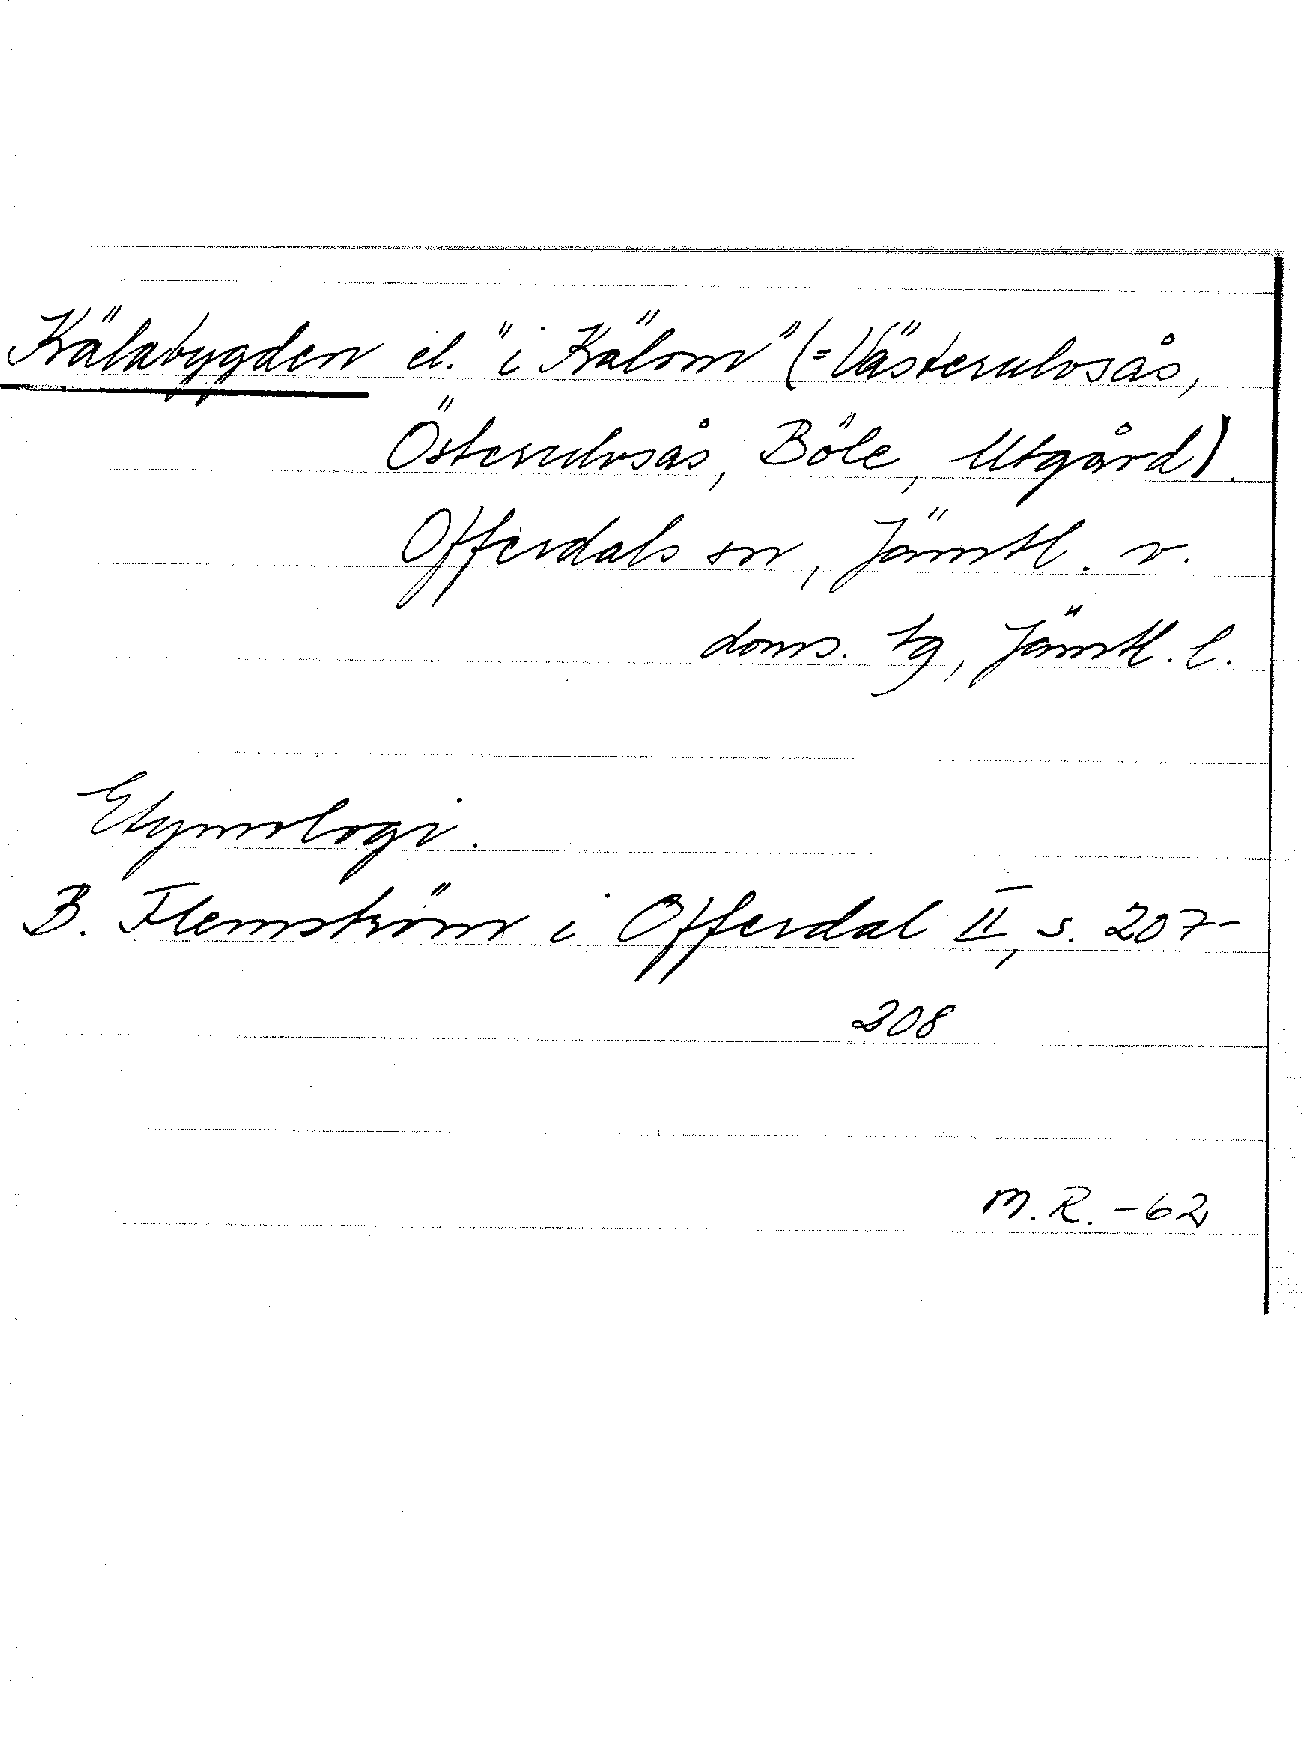 Kälabygden el. "i Kälom" (=Västerulvsås,
Österulvsås, Böle, Utgård).
Offerdals sn, Jämtl. v.
doms. tg, Jämtl. l.
Etymologi.
B. Flemström i Offerdal II, s. 207-
208
M.R. -62